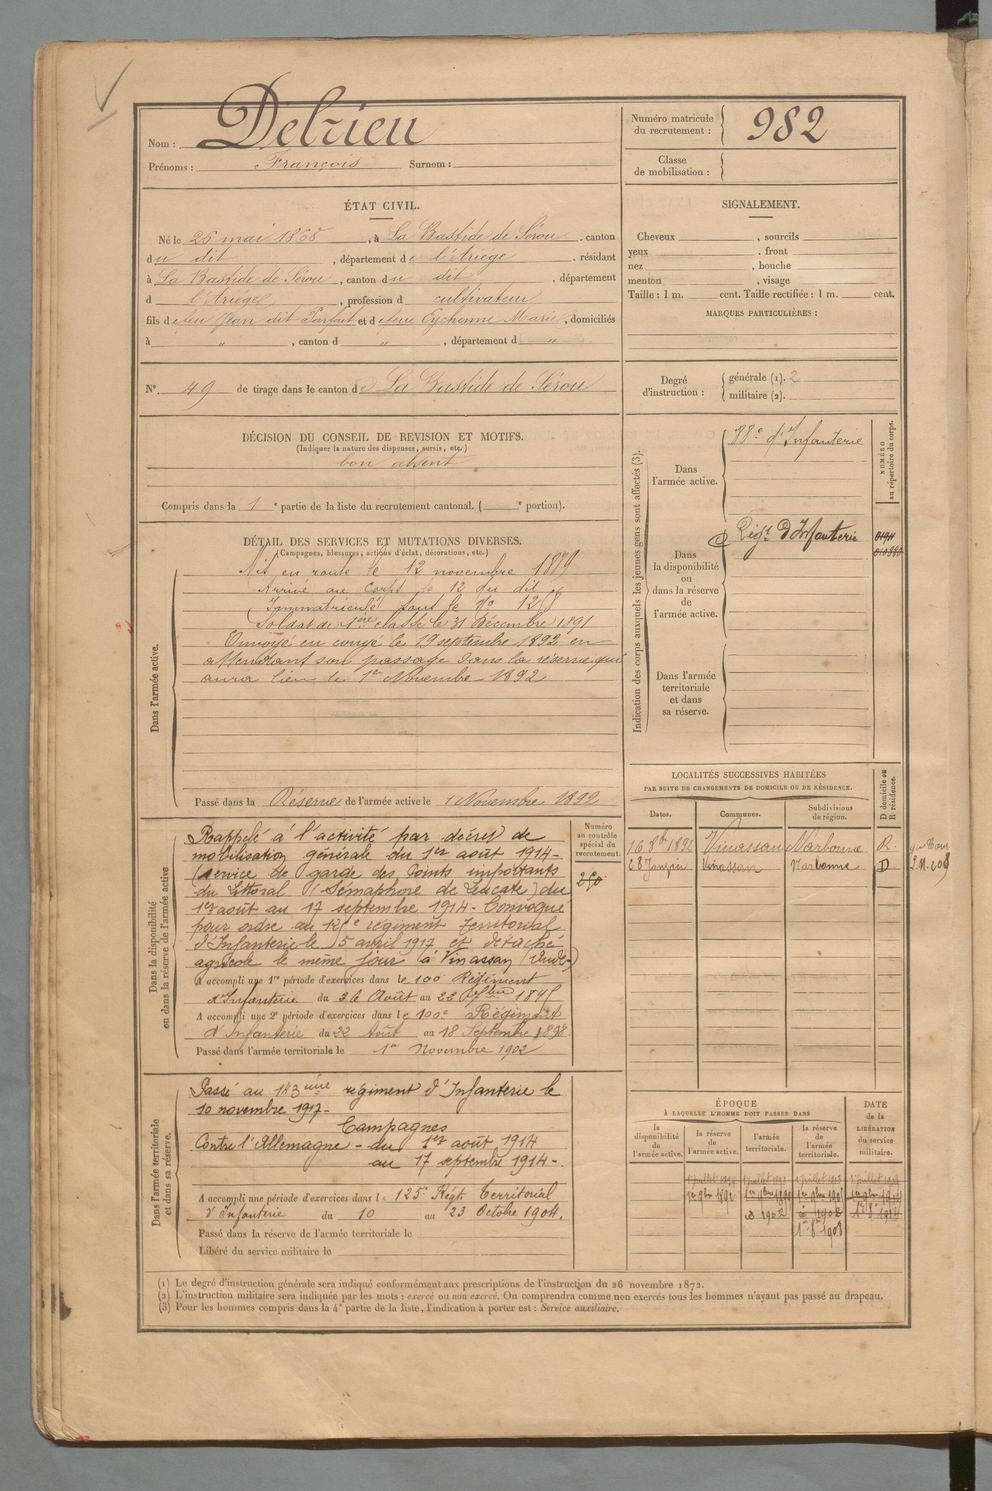 Nom : Delrieu
Prénoms : François Surnom :
Numéro matricule du recrutement : 982
Classe de mobilisation :
ÉTAT CIVIL.
Né le 26 mai 1868, à La Bastide de Sérou, canton
du dit, département de l'Ariège, résidant
à La Bastide de Sérou, canton du dit, département
d l'Ariège, profession d cultivateur
fils de feu Jean dit Parfait et de feue Eychenne Marie, domiciliés
à „ , canton d „ , département d „
N° 49 de tirage dans le canton de La Bastide de Sérou
SIGNALEMENT.
Cheveux , sourcils
yeux , front
nez , bouche
menton , visage
Taille : 1 m. cent. Taille rectifiée : 1 m. cent.
MARQUES PARTICULIÈRES :
Degré d'instruction : générale (1). 2
militaire (2).
DÉCISION DU CONSEIL DE REVISION ET MOTIFS.
(Indiquer la nature des dispenses, sursis, etc.)
bon absent
Compris dans la 1e partie de la liste du recrutement cantonal. ( e portion).
DÉTAIL DES SERVICES ET MUTATIONS DIVERSES.
(Campagnes, blessures, actions d'éclat, décorations, etc.)
Dans l'armée active.
Mis en route le 12 novembre 1889
Arrivé au Corps le 12 du dit
Immatriculé sous le No
Soldat de 1ère classe le 31 Décembre 1891
Envoyé en congé le 19 septembre 1892 en
attendant son passage dans la réserve qui
aura lieu le 1er Novembre 1892
Passé dans la Réserve de l'armée active le 1 Novembre 1892
Indication des corps auxquels les jeunes gens sont affectés (3).
NUMÉRO au répertoire du corps.
Dans l'armée active.
d'Infanterie
Dans la disponibilité ou dans la réserve de l'armée active.
Régt D'Infanterie
Dans l'armée territoriale et dans sa réserve.
LOCALITÉS SUCCESSIVES HABITÉES
PAR SUITE DE CHANGEMENTS DE DOMICILE OU DE RÉSIDENCE.
Dates. Communes. Subdivisions de région. D domicile ou R résidence.
16 8bre 1892 Vinassan Narbonne R.
Vinassan Narbonne D
Dans la disponibilité ou dans la réserve de l'armée active
Numéro au contrôle spécial du recrutement.
Rappelé à l'activité par décret de
mobilisation générale du 1er août 1914-
(service de garde des Points importants
du Littoral (Sémaphore de Leucate) du
1er août au 17 septembre 1914- Convoqué
pour ordre au 125e régiment Territorial
d'Infanterie le 5 avril 1917 et détaché
agricole le même jour à Vinassan (Aude)
A accompli une 1re période d'exercices dans le 100 Régiment
d'Infanterie du 26 Août au 22 7bre 1895
A accompli une 2e période d'exercices dans le 100e Régiment
d'Infanterie du 22 Août au 18 Septembre 1898
Passé dans l'armée territoriale le 1er Novembre 1902
Dans l'armée territoriale et dans sa réserve.
Passé au 143ème régiment d'Infanterie le
10 novembre 1917-
Campagnes
Contre l'Allemagne - du 1er août 1914
au 17 septembre 1914-
A accompli une période d'exercices dans l 125 Régt Territorial
d'Infanterie du 10 au 23 Octobre 1904.
Passé dans la réserve de l'armée territoriale le
Libéré du service militaire le
ÉPOQUE
À LAQUELLE L'HOMME DOIT PASSER DANS
la disponibilité de l'armée active.
la réserve de l'armée active.
l'armée territoriale.
la réserve de l'armée territoriale.
DATE de la LIBÉRATION du service militaire.
1er 9bre 1892
(1) Le degré d'instruction générale sera indiqué conformément aux prescriptions de l'instruction du 26 novembre 1872.
(2) L'instruction militaire sera indiquée par les mots : exercé ou non exercé. On comprendra comme non exercés tous les hommes n'ayant pas passé au drapeau.
(3) Pour les hommes compris dans la 4e partie de la liste, l'indication à porter est : Service auxiliaire.